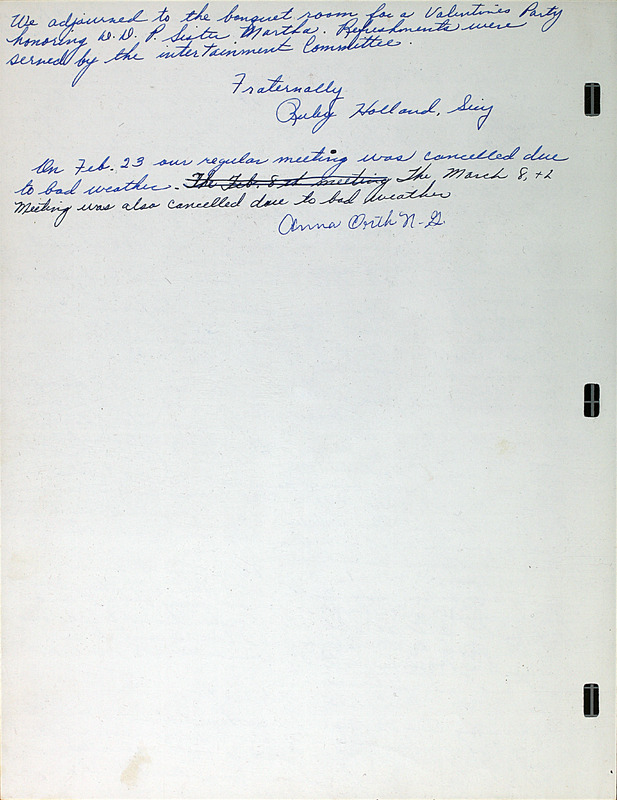 We adjourned to the banquet room for a Valentines Party
honoring D. D. P. Sister Martha. Refreshments were
served by the intertainment Committee.
Fraternally
Ruby Holland, Sicy
On Feb. 23 our regular meeting was cancelled due
to bad weather. The Feb. 8 th meeting The, March 8, th
Meeting was also cancelled due to bad weather
Anna Orth N-G.